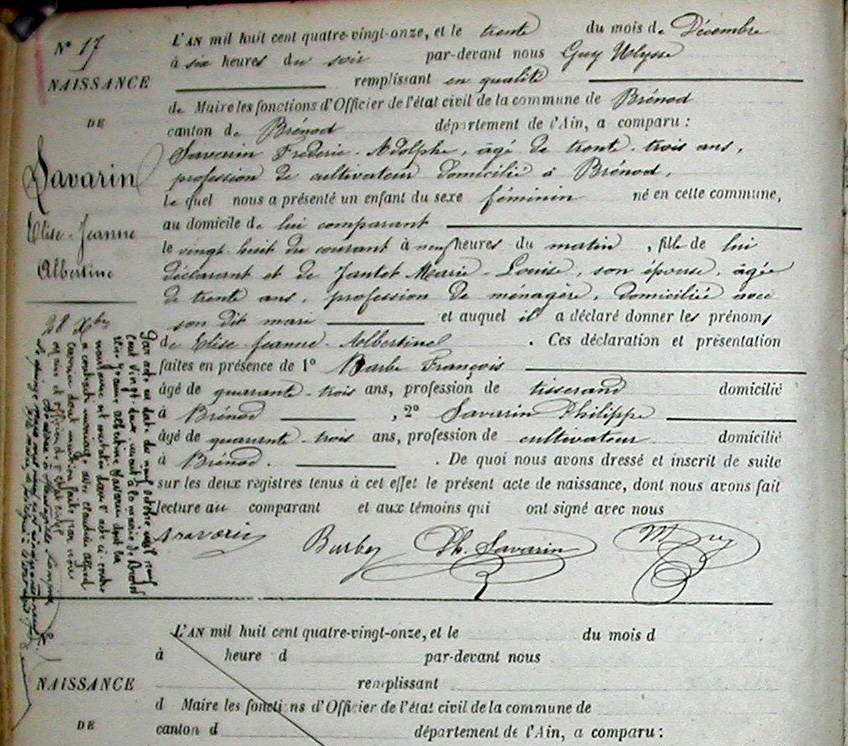 N° 17
NAISSANCE
DE
Savarin
Elise-Jeanne
Albertine
28 Xbre
L'AN mil huit cent quatre-vingt-onze, et le trente du mois de Décembre
à six heures du soir par-devant nous Guy Ulysse
remplissant en qualité
de Maire les fonctions d'Officier de l'état civil de la commune de Brénod
canton de Brénod département de l'Ain, a comparu :
Savarin Frédéric-Adolphe, âgé de trent-trois ans,
profession de cultivateur domicilié à Brénod,
le quel nous a présenté un enfant du sexe féminin né en cette commune,
au domicile de lui comparant
le vingt-huit du courant à neuf heures du matin, fille de lui
déclarant et de Jantet Marie-Louise, son épouse, âgée
de trente ans, profession de ménagère, domiciliée avec
son dit mari et auquel il a déclaré donner les prénoms
de Elise-Jeanne-Albertine . Ces déclaration et présentation
faites en présence de 1° Barbe François
âgé de quarante-trois ans, profession de tisserand domicilié
à Brénod , 2° Savarin Philippe
âgé de quarante-trois ans, profession de cultivateur domicilié
à Brénod. . De quoi nous avons dressé et inscrit de suite
sur les deux registres tenus à cet effet le présent acte de naissance, dont nous avons fait
lecture au comparant et aux témoins qui ont signé avec nous
Savarin Barbe Ph. Savarin
Par acte en date du neuf octobre mil neuf
cent vingt-deux, reçu à la mairie de
NAISSANCE
DE
L'AN mil huit cent quatre-vingt-onze, et le du mois d
à heure d par-devant nous
remplissant
d Maire les fonctions d'Officier de l'état civil de la commune de
canton d département de l'Ain, a comparu :